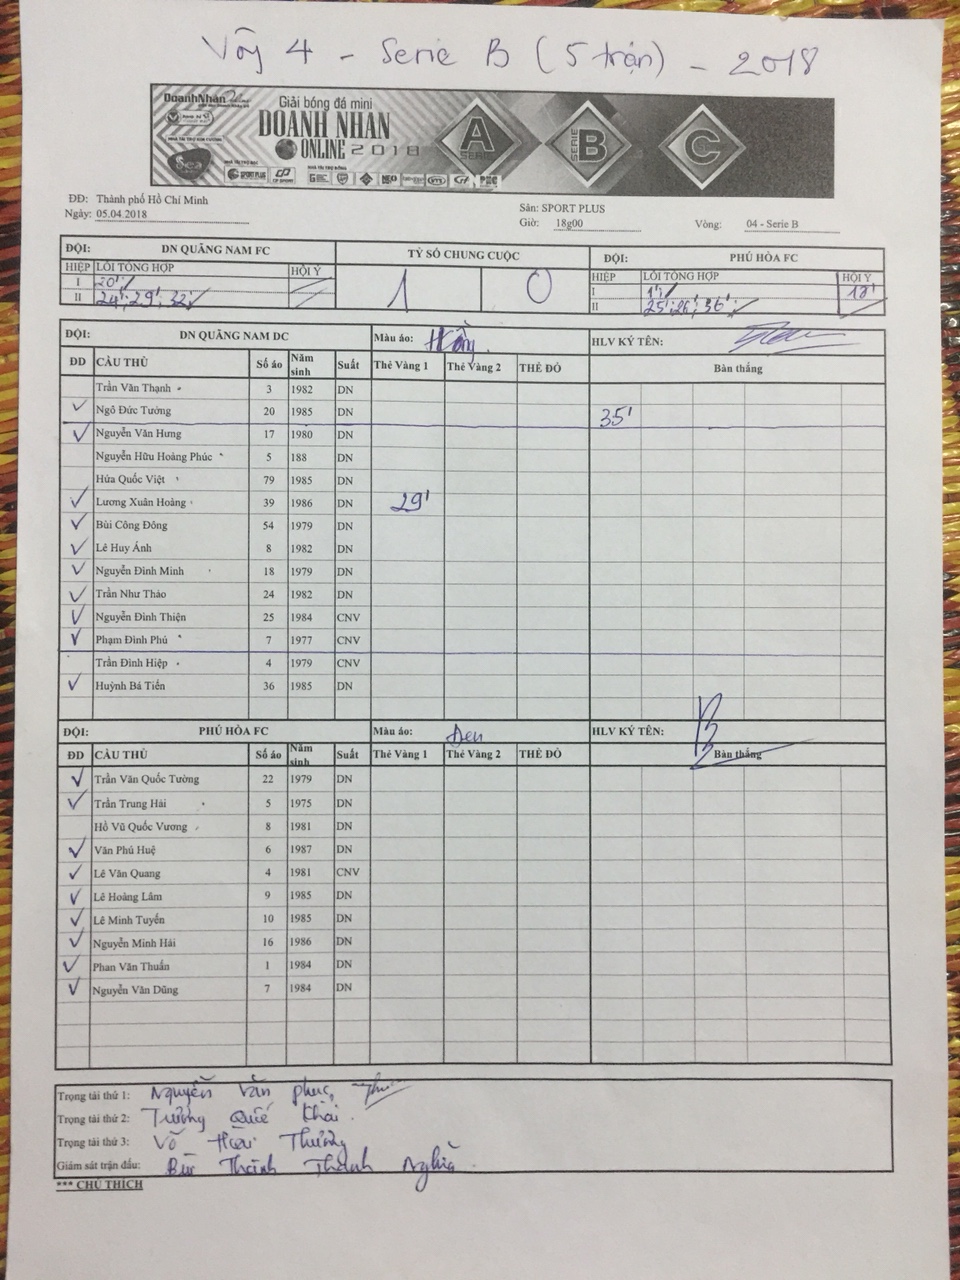 Vòng 4 - Serie B (5 trận) - 2018
DoanhNhan
Giải bóng đá mini
DOANH NHAN
ONLINE 2018
A SERIE
SERIE B
C
NHÀ TÀI TRỢ KIM CƯƠNG
Sea
SPORT PLUS
ĐĐ: Thành phố Hồ Chí Minh
Ngày: 05.04.2018
Sân: SPORT PLUS
Giờ: 18g00 Vòng: 04 - Serie B
ĐỘI: DN QUÃNG NAM FC TỶ SỐ CHUNG CUỘC ĐỘI: PHÚ HÒA FC
HIỆP LỖI TỔNG HỢP HỘI Ý 1 0 HIỆP LỖI TỔNG HỢP HỘI Ý
I 20' I 11' 12'
II 24'; 29'; 32' II 25'; 26'; 36'
ĐỘI: DN QUÃNG NAM DC Màu áo: Hồng HLV KÝ TÊN:
ĐD CẦU THỦ Số áo Năm sinh Suất Thẻ Vàng 1 Thẻ Vàng 2 THẺ ĐỎ Bàn thắng
Trần Văn Thạnh 3 1982 DN
✓ Ngô Đức Tưởng 20 1985 DN 35'
✓ Nguyễn Văn Hưng 17 1980 DN
Nguyễn Hữu Hoàng Phúc 5 188 DN
Hứa Quốc Việt 79 1985 DN
✓ Lương Xuân Hoàng 39 1986 DN 29'
✓ Bùi Công Đông 54 1979 DN
✓ Lê Huy Ánh 8 1982 DN
✓ Nguyễn Đình Minh 18 1979 DN
✓ Trần Như Thảo 24 1982 DN
✓ Nguyễn Đình Thiện 25 1984 CNV
✓ Phạm Đình Phú 7 1977 CNV
Trần Đình Hiệp 4 1979 CNV
✓ Huỳnh Bá Tiến 36 1985 DN
ĐỘI: PHÚ HÒA FC Màu áo: Đen HLV KÝ TÊN:
ĐD CẦU THỦ Số áo Năm sinh Suất Thẻ Vàng 1 Thẻ Vàng 2 THẺ ĐỎ Bàn thắng
✓ Trần Văn Quốc Tường 22 1979 DN
✓ Trần Trung Hải 5 1975 DN
Hồ Vũ Quốc Vương 8 1981 DN
✓ Văn Phú Huệ 6 1987 DN
✓ Lê Văn Quang 4 1981 CNV
✓ Lê Hoàng Lâm 9 1985 DN
✓ Lê Minh Tuyến 10 1985 DN
✓ Nguyễn Minh Hải 16 1986 DN
✓ Phan Văn Thuấn 1 1984 DN
✓ Nguyễn Văn Dũng 7 1984 DN
Trọng tài thứ 1: Nguyễn Văn phúc
Trọng tài thứ 2: Trương Quốc Khải
Trọng tài thứ 3: Võ Hoài Thương
Giám sát trận đấu: Bùi Thành Thanh Nghĩa
*** CHÚ THÍCH